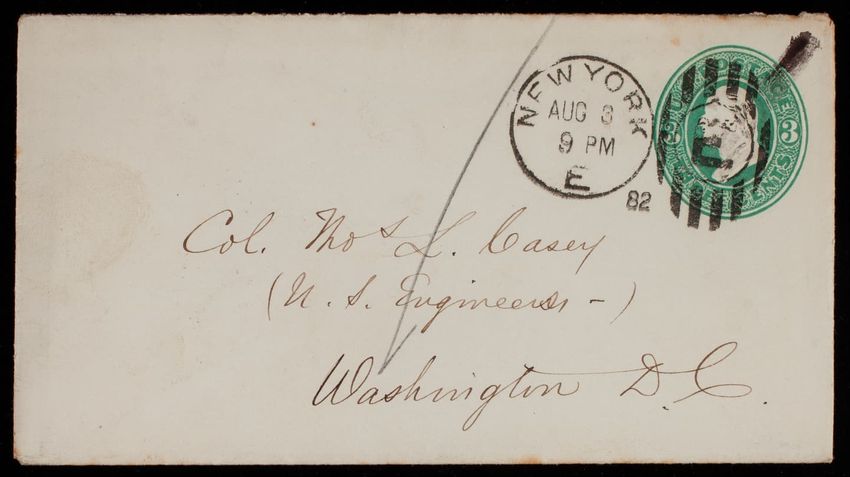 NEW YORK
AUG 3
9 PM
E
82
U.S. POSTAGE
3 3
Col. Thos L. Casey
(U. S. Engineers -)
Washington D. C.